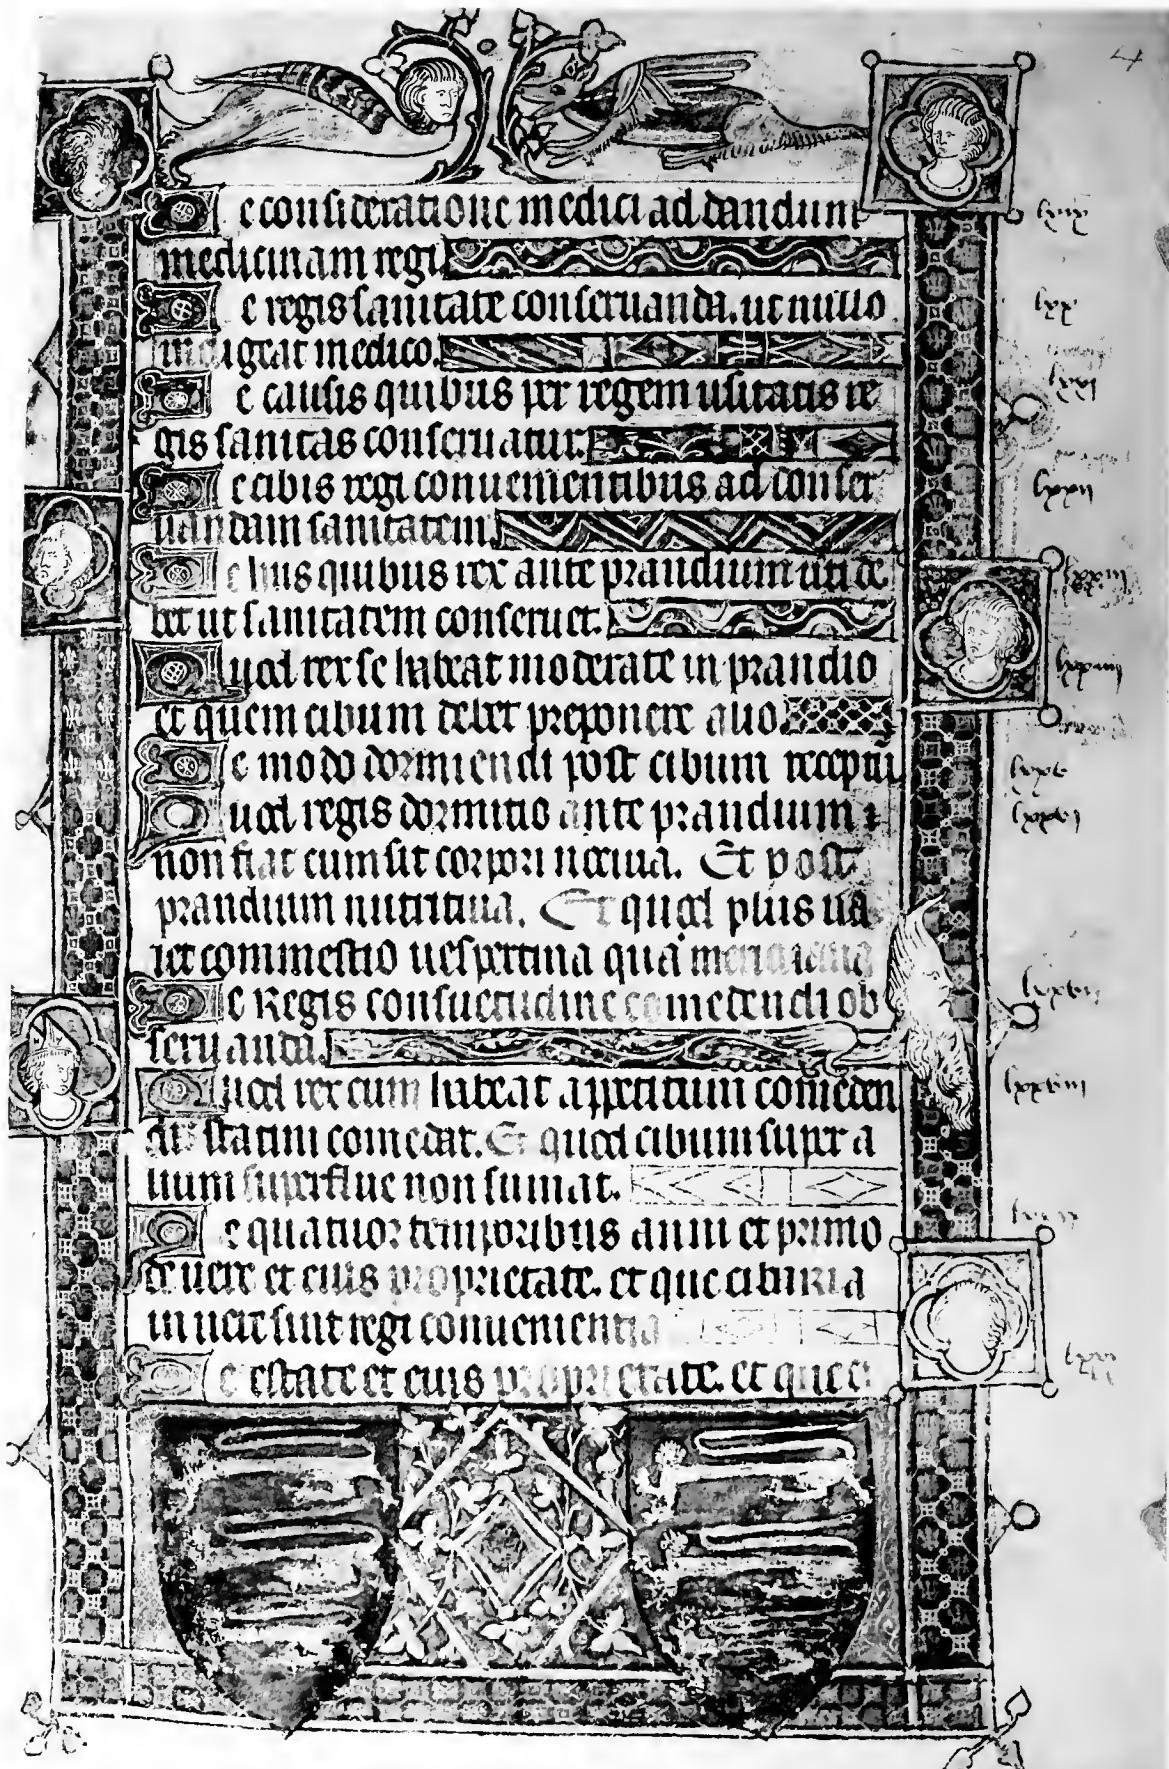 4
De consideratione medici ad dandum lxix
medicinam regi
De regis sanitate conseruanda. ut nullo lxx
indigeat medico.
De causis quibus per regem usitatis re lxxi
gis sanitas conseruatur.
De cibis regi conuenientibus ad conser lxxii
uandam sanitatem
De hiis quibus rex ante prandium uti de lxxiii
bet ut sanitatem conseruet.
Quod rex se habeat moderate in prandio lxxiiii
et quem cibum debet preponere alio
De modo dormiendi post cibum receptū lxxv
Quod regis dormitio ante prandium lxxvi
non fiat cum sit corpori nociua. Et post
prandium nutritiua. Et quod plus ua
let commestio uespertina quā meridiana
De Regis consuetudine comedendi ob lxxvii
seruanda.
Quod rex cum habeat appetitum comeden lxxviii
di statim comedat. Et quod cibum super a
lium superflue non sumat.
De quatuor temporibus anni et primo
de uere et eius proprietate. et que cibaria
in uere sint regi conuenientia
De estate et eius proprietate. et que ci